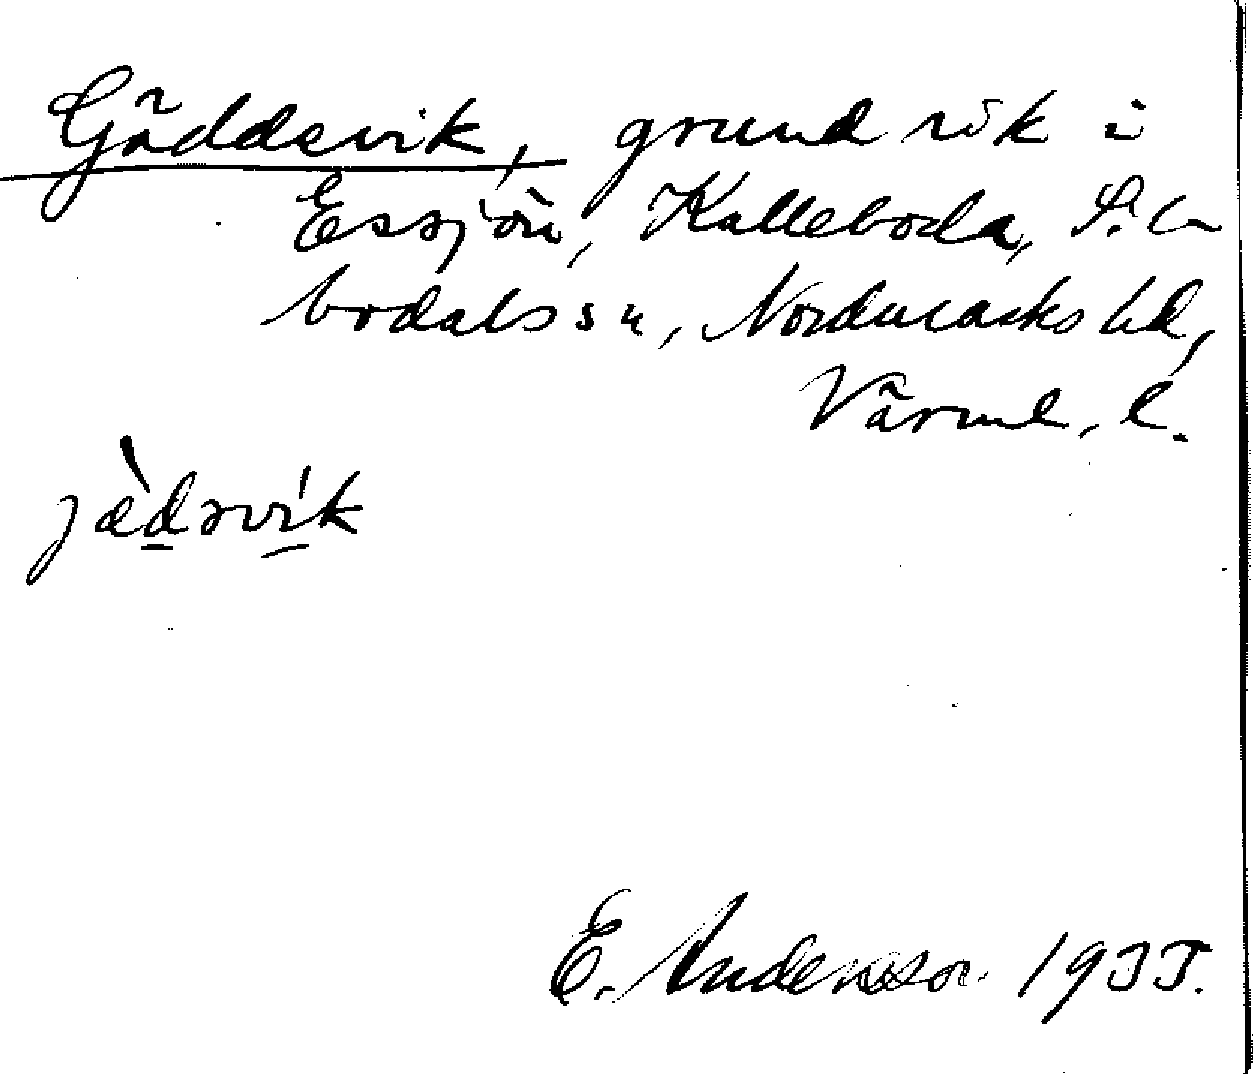 Gäddevik, grund vik i
Essjön, Kalleboda, S.
bodals sn, Nordmarks hd,
Värml. l.
jæ̀dəvík
E. Andersson 1933.